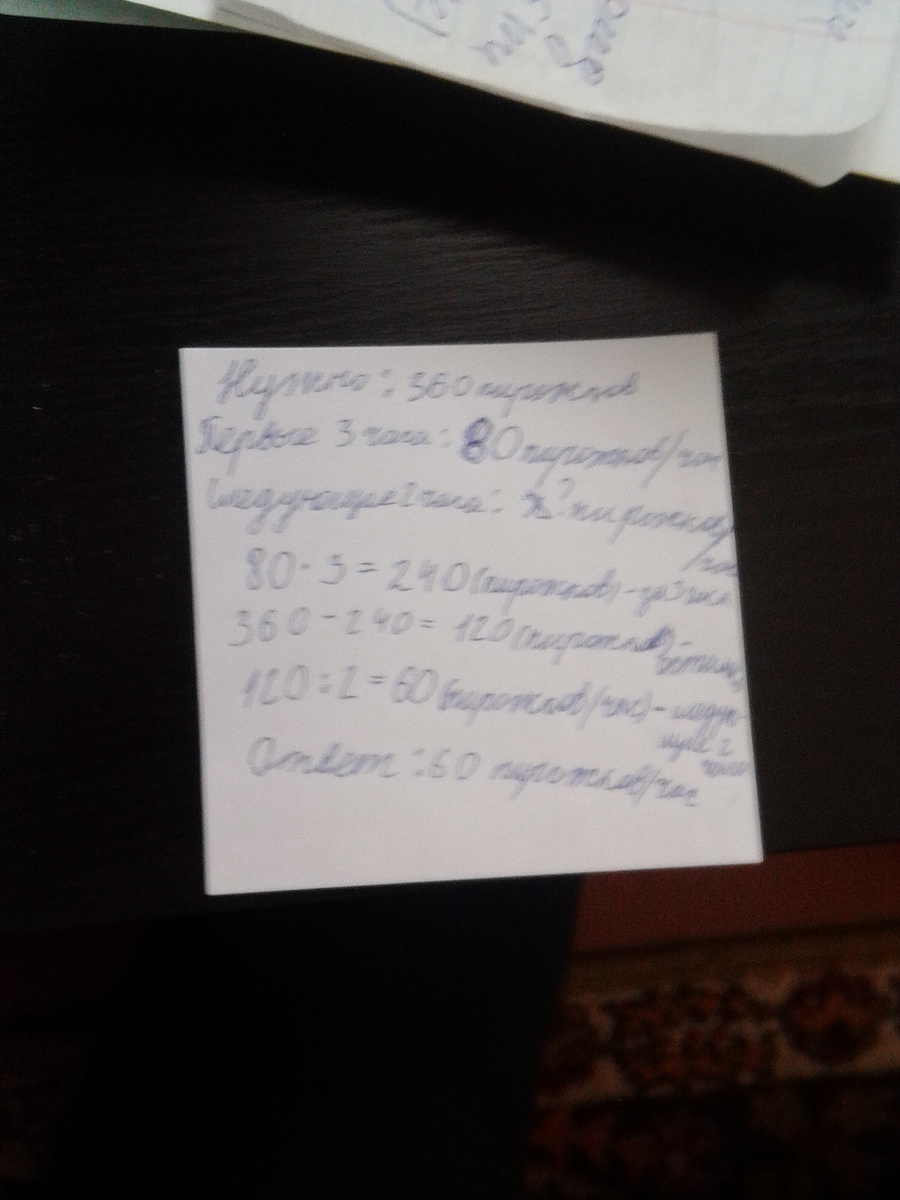 Нужно: 360 пирожков
Первые 3 часа: 80 пирожков/час
Следующие 2 часа: х? пирожков/
час
80 · 3 = 240 (пирожков) - за 3 часа
360 - 240 = 120 (пирожков) -
120 : 2 = 60 (пирожков/час) - следую-
щие 2
часа
Ответ: 60 пирожков/час